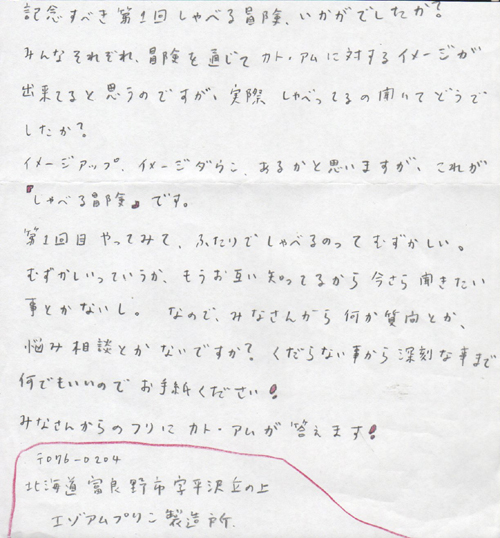 記念すべき第1回しゃべる冒険、いかがでしたか?
みんなそれぞれ、冒険を通じてカト・アムに対するイメージが
出来てると思うのですが、実際しゃべってるの聞いてどうで
したか?
イメージアップ、イメージダウン、あるかと思いますが、これが
『しゃべる冒険』です。
第1回目やってみて、ふたりでしゃべるのってむずかしい。
むずかしいっていうか、もうお互い知ってるから今さら聞きたい
事とかないし。なので、みなさんから何か質問とか、
悩み相談とかないですか?くだらない事から深刻な事まで
何でもいいのでお手紙ください!
みなさんからのフリにカト・アムが答えます!
〒076-0204
北海道富良野市字平沢丘の上
エゾアムプリン製造所.